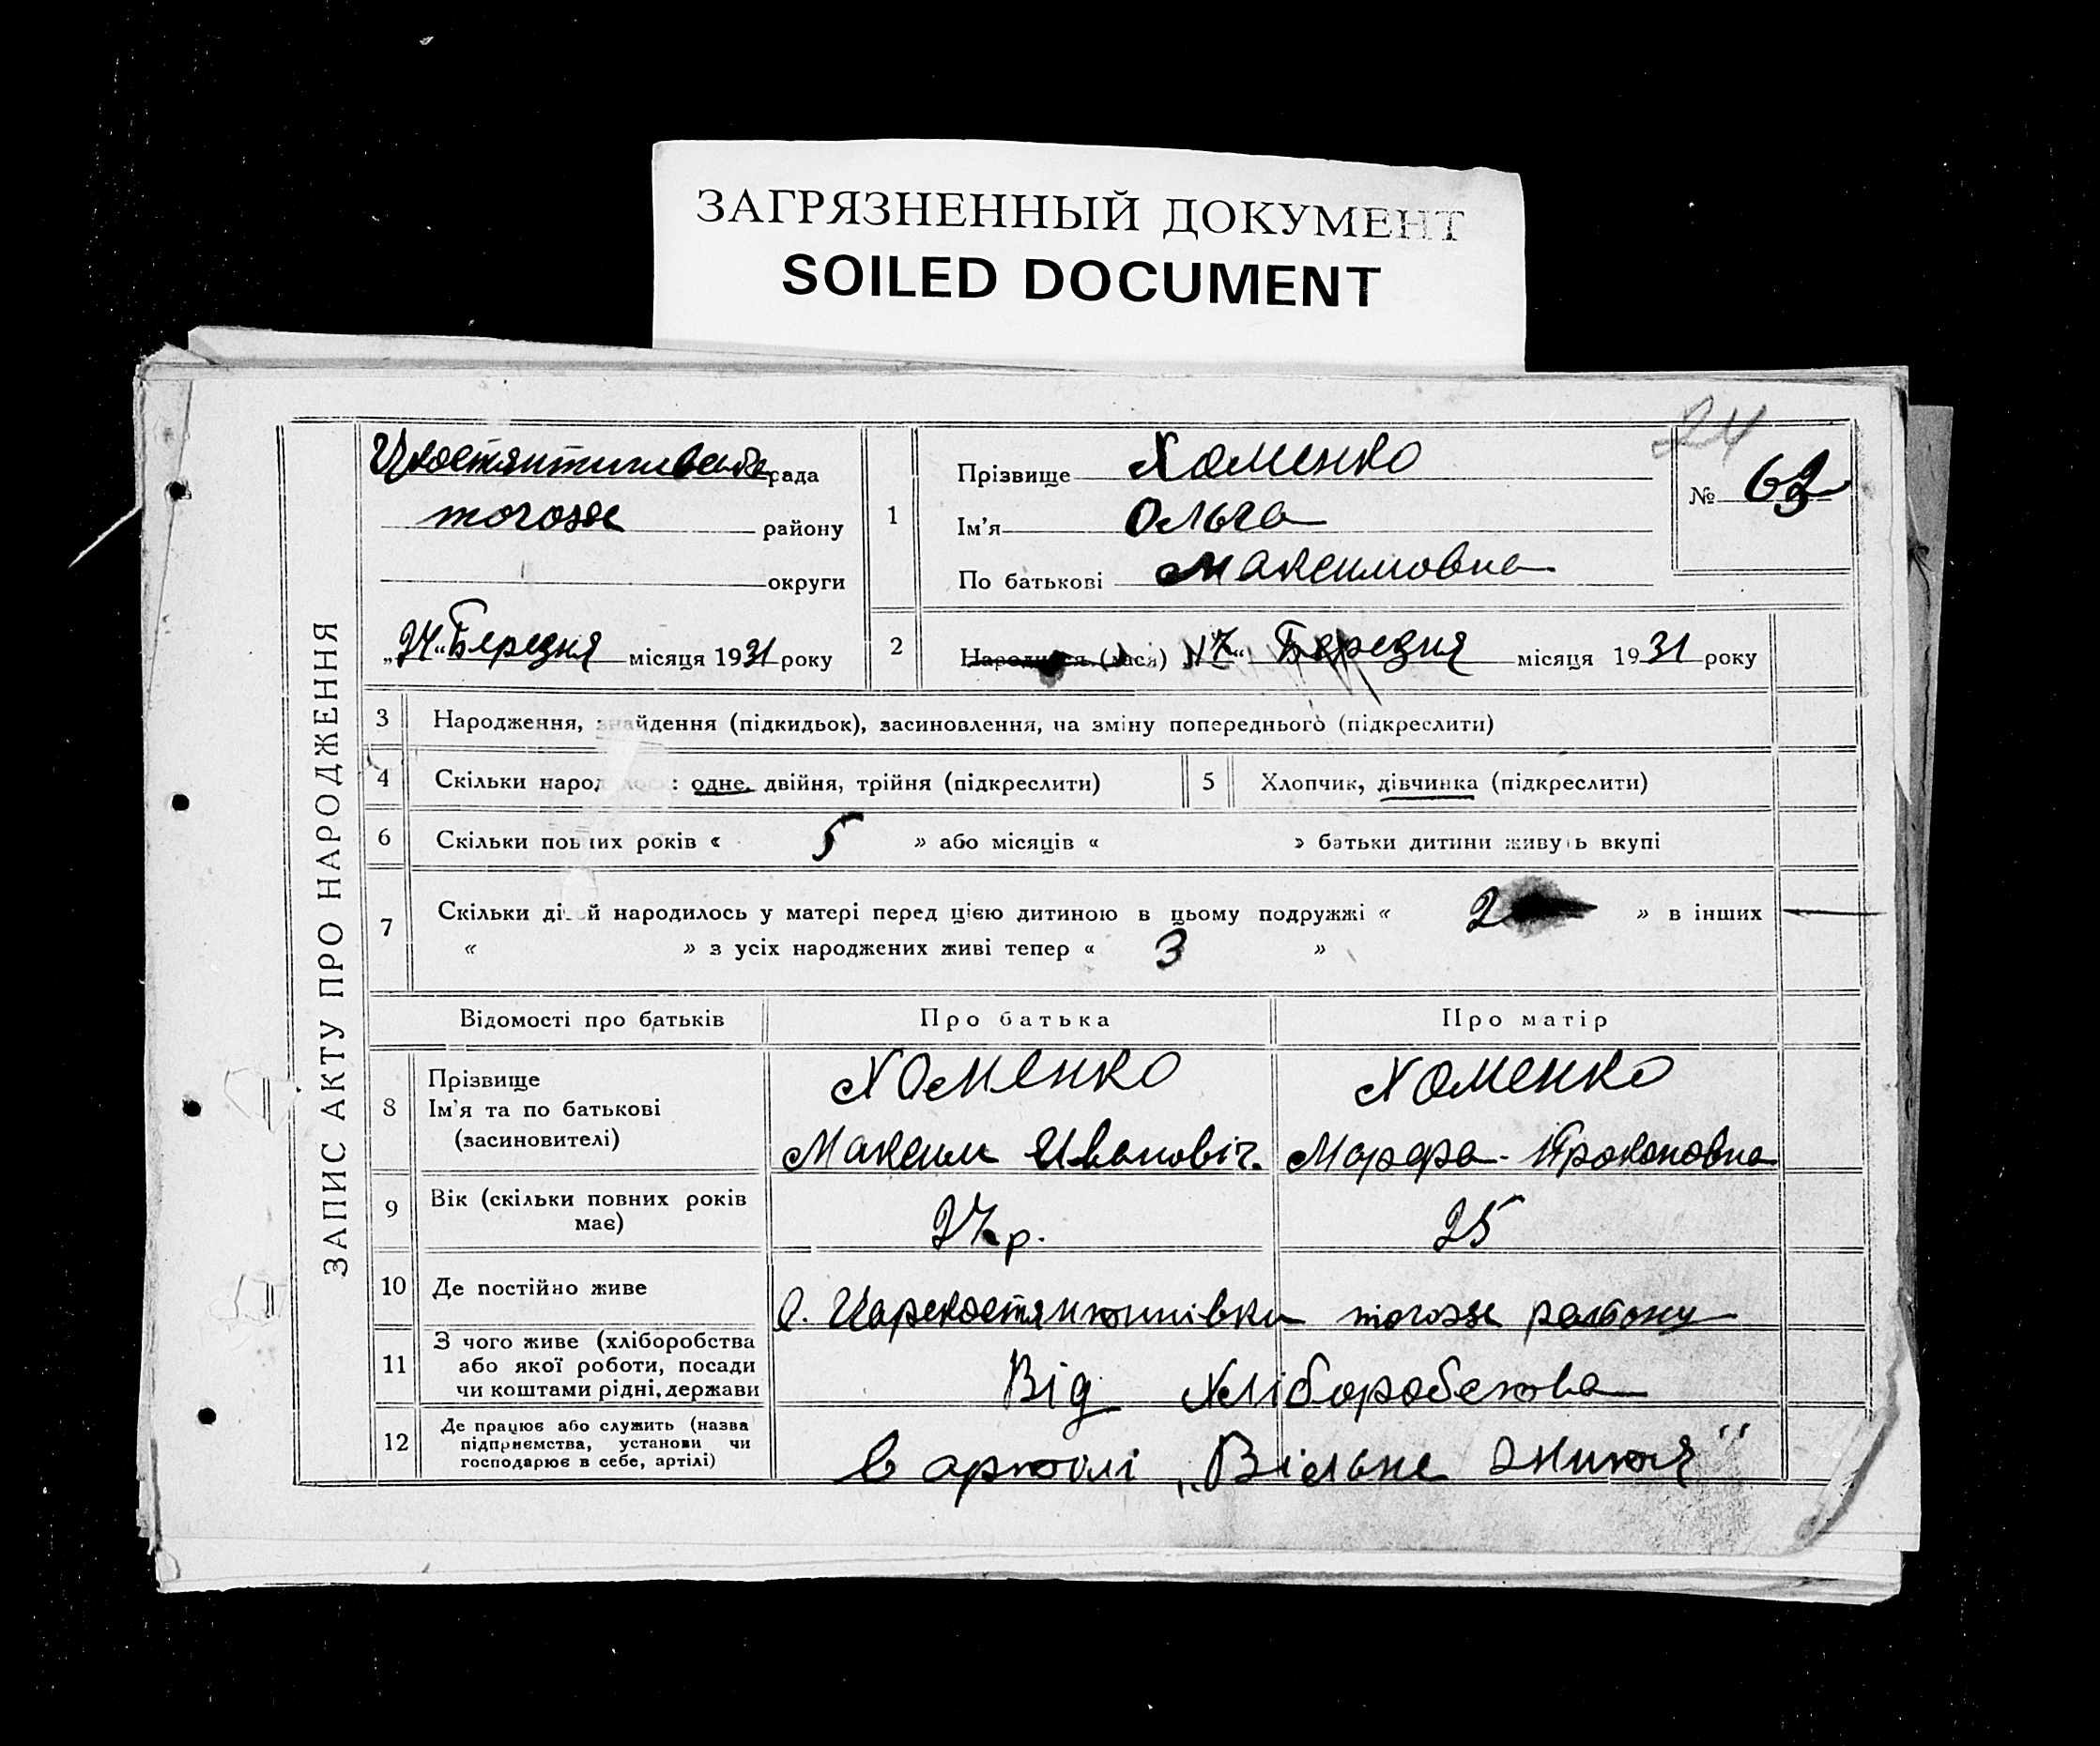 ЗАГРЯЗНЕННЫЙ ДОКУМЕНТ
SOILED DOCUMENT
ЗАПИС АКТУ ПРО НАРОДЖЕННЯ
рада
тогож району
округи
„24“ Березня місяця 1931 року
24
№ 63
1
Прізвище Хоменко
Ім'я Ольга
По батькові Максимовна
2
Народився (лася) „17“ Березня місяця 1931 року
3 Народження, знайдення (підкидьок), засиновлення, на зміну попереднього (підкреслити)
4 Скільки народ лось: одне, двійня, трійня (підкреслити)
5 Хлопчик, дівчинка (підкреслити)
6 Скільки повних років « 5 » або місяців « » батьки дитини живуть вкупі
7 Скільки дітей народилось у матері перед цією дитиною в цьому подружжі « 2 » в інших
« » з усіх народжених живі тепер « 3 »
Відомості про батьків Про батька Про матір
8 Прізвище
Ім'я та по батькові
(засиновителі)
Хоменко
Максим Ивановіч.
Хоменко
Марфа Прокоповна
9 Вік (скільки повних років має)
27 р.
25
10 Де постійно живе
с. Царекостянтинівки тогож району
11 З чого живе (хліборобства
або якої роботи, посади
чи коштами рідні, держави
Від хліборобства
12 Де працює або служить (назва
підприємства, установи чи
господарює в себе, артілі)
в артілі „Вільне життя"